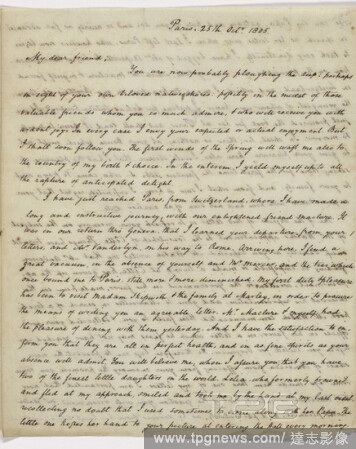 Paris. 25th Octr. 1805.
My dear friend;
You are now probably ploughing the deep: perhaps
in sight of your own beloved native shores: possibly in the midst of those
valuable friends whom you so much admire, & who will receive you with
ardent joy. In every case I envy your expected or actual enjoyment. But
I shall soon follow you. The first winds of the Spring will waft me also to
the country of my birth & choice. In the interim I yield myself up to all
the rapture of anticipated delight.
I have just reached Paris, from Switzerland, where I have made a
long and instructive journey, with our enlightened friend Maclure. It
was on our return thro Geneva that I learned your departure, from your
letters, and Mr Vanderlyn on his way to Rome. Arriving here, I find a
great vacuum in the absence of yourself and Mr Mercer, and the ties which
once bound me to Paris still more & more diminished. My first duty & pleasure
has been to visit Madam Skipwith & the family at Marly, in order to procure
the means of writing you an agreeable letter. Mr Maclure & myself had
the pleasure of dining with them yesterday. And I have the satisfaction to in
form you that they are all in perfect health, and in as fine spirits as your
absence will admit. You will believe me, when I assure you that you have
two of the finest little daughters in the world. Lelia, who formerly
and fled at my approach, smiled and took me by the hand at my last visit.
recollecting no doubt that I used sometimes to come along with her Papa. The
little one her hand to your picture at entering the every morning
www.tpgnews.com / 達志影像